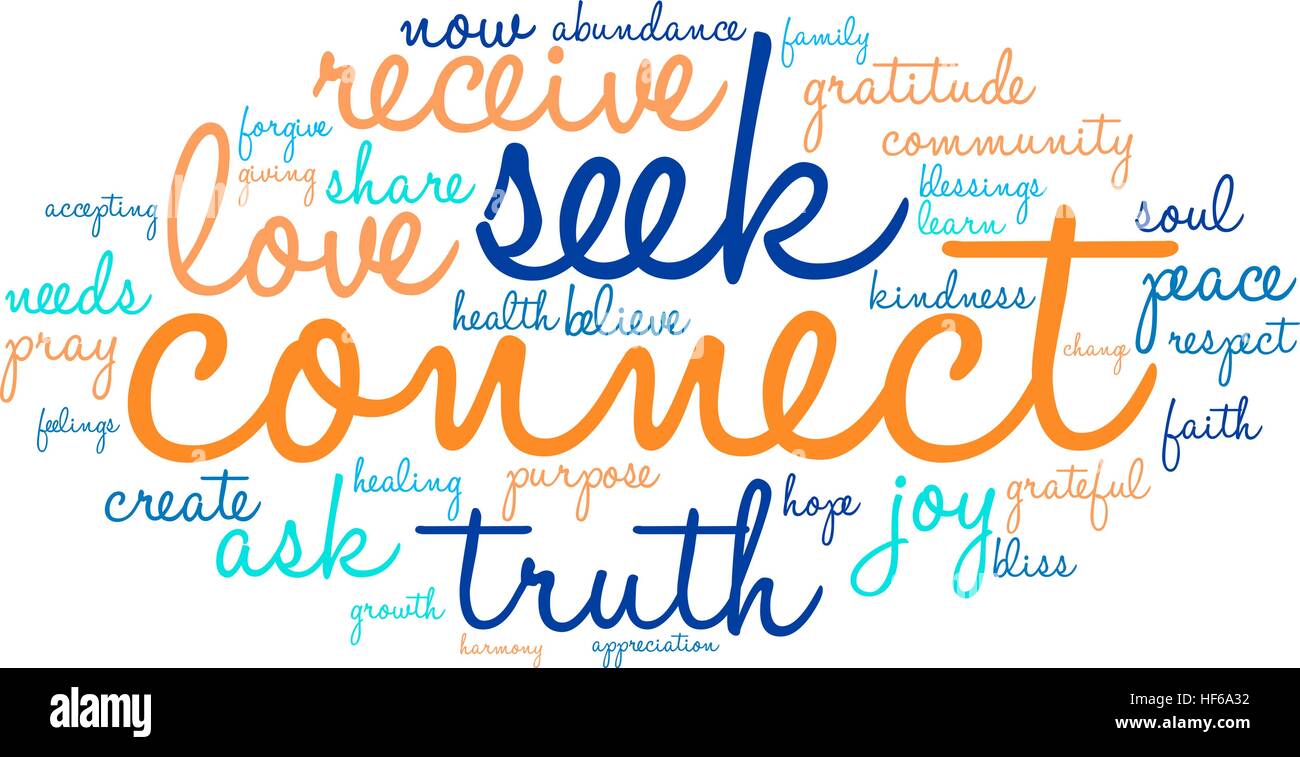 now abundance family
receive gratitude
forgive seek community
love giving share blessings
accepting learn soul
needs health believe kindness peace
pray connect change respect
feelings faith
create healing purpose hope joy grateful
ask truth bliss
growth
harmony appreciation
alamy stock photo
alamy
Image ID: HF6A32
www.alamy.com